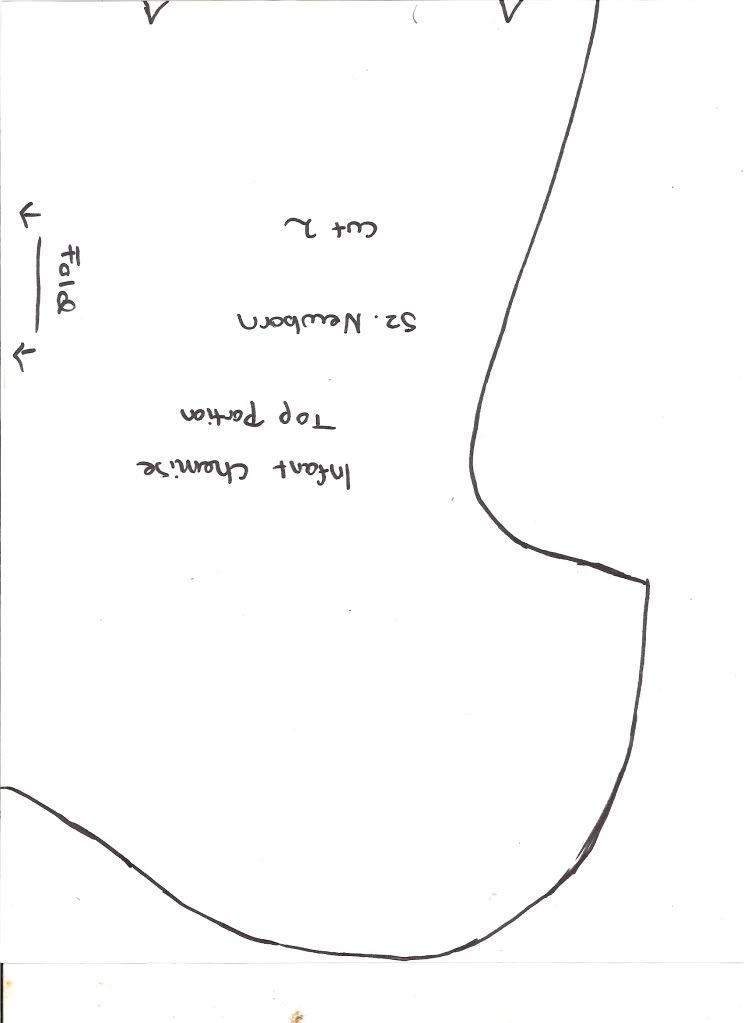 Infant Chemise
Top Portion
Sz. Newborn
Cut 2
Fold